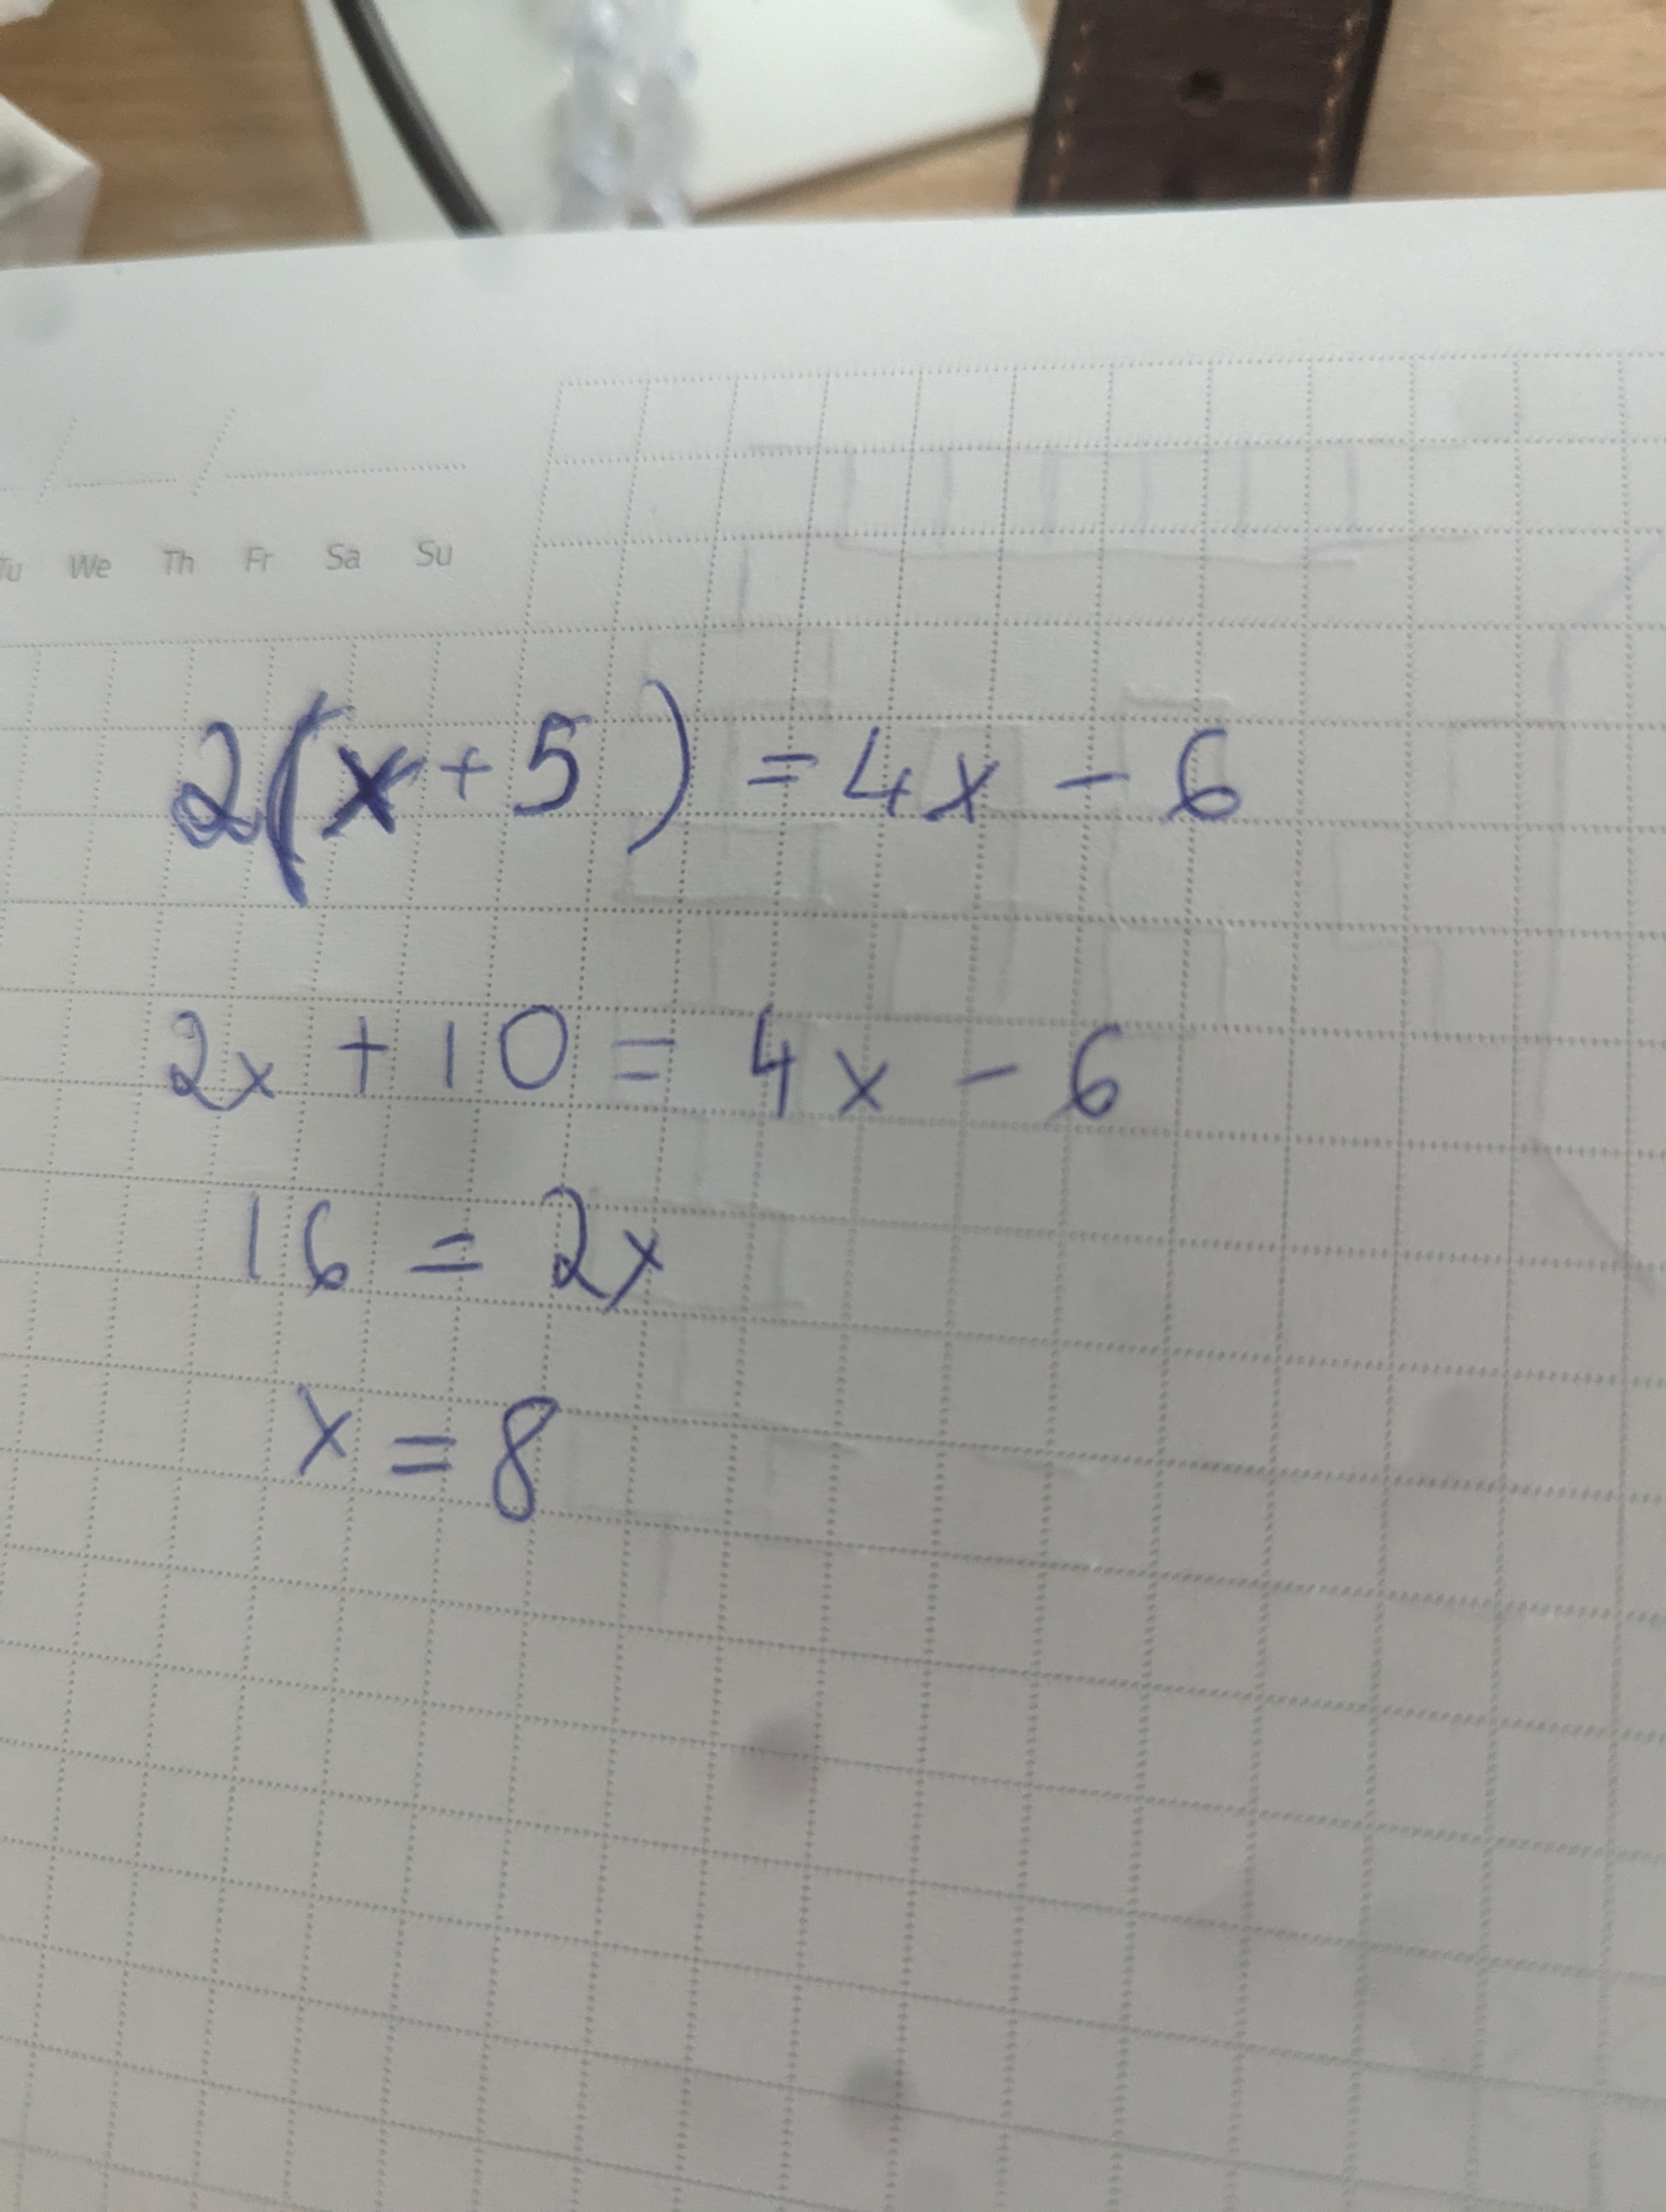 Tu We Th Fr Sa Su
2(x+5) = 4x - 6
2x + 10 = 4x - 6
16 = 2x
x = 8